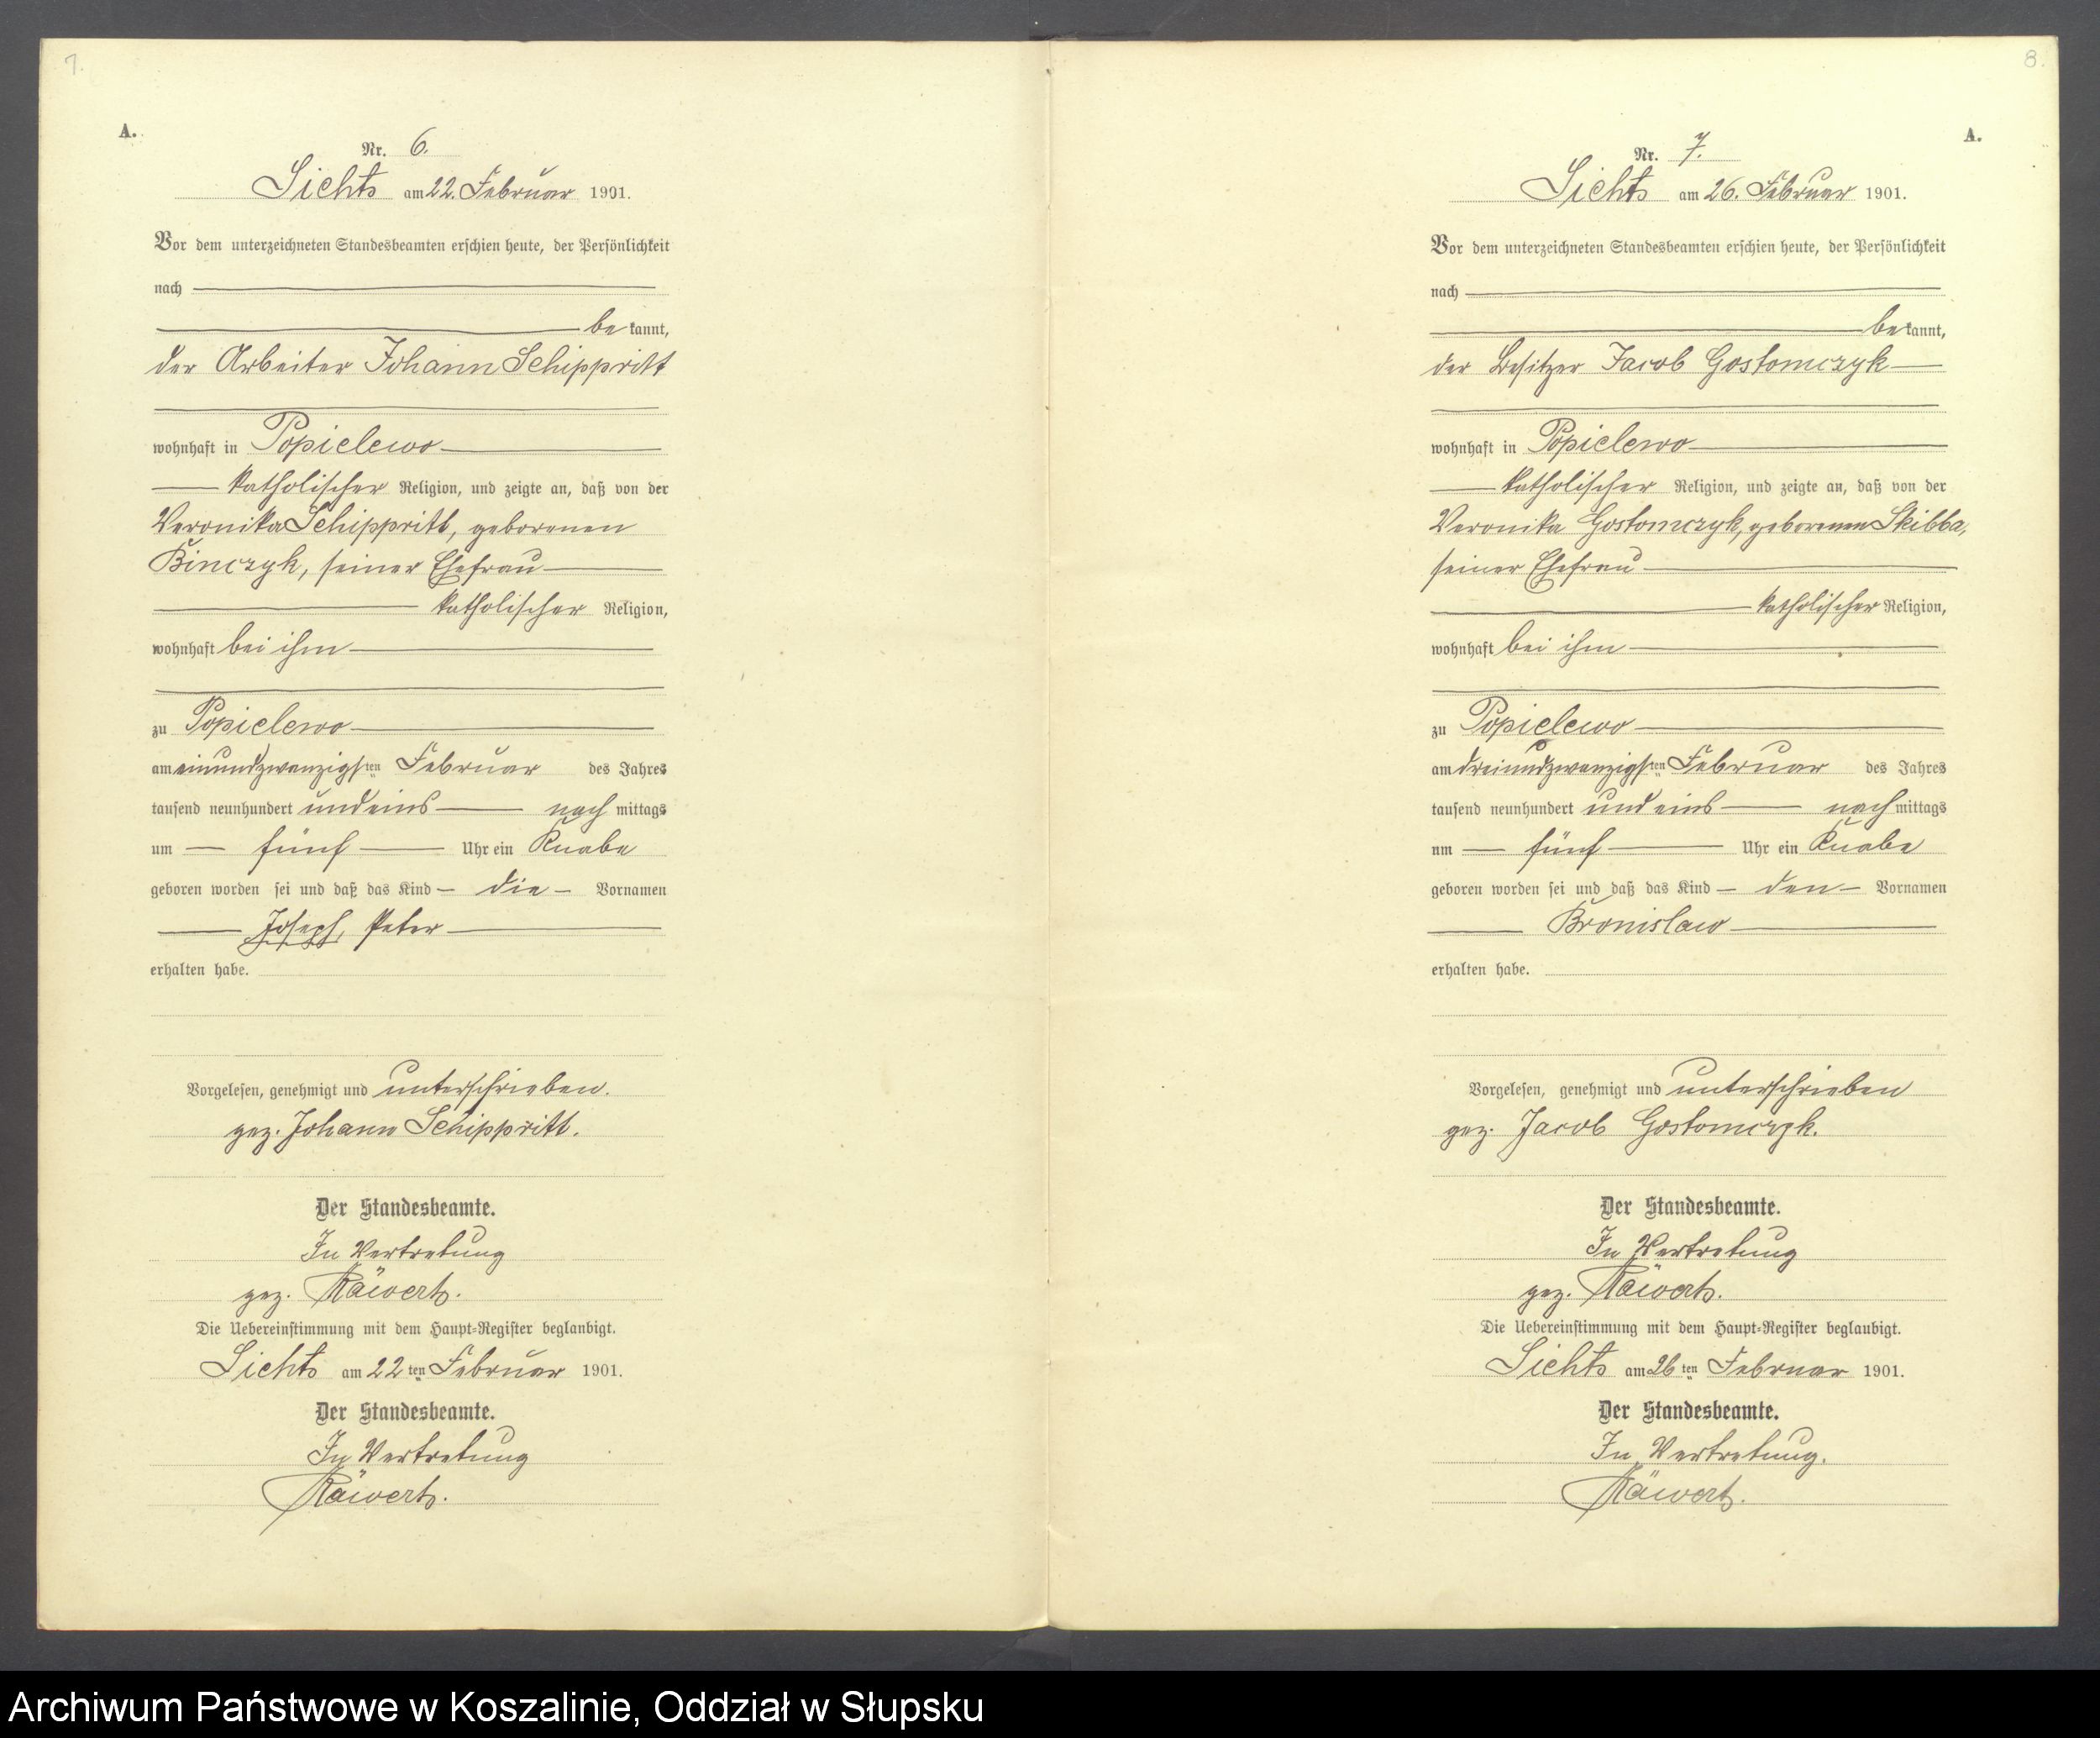 7.
A.
Nr. 6.
Lichts am 22. Februar 1901.
Vor dem unterzeichneten Standesbeamten erschien heute, der Persönlichkeit
nach
be kannt,
der Arbeiter Johann Schippritt
wohnhaft in Popielewo
katholischer Religion, und zeigte an, daß von der
Veronika Schippritt, geborenen
Binczyk, seiner Ehefrau
katholischer Religion,
wohnhaft bei ihm
zu Popielewo
am einundzwanzigsten Februar des Jahres
tausend neunhundert und eins nach mittags
um fünf Uhr ein Knabe
geboren worden sei und daß das Kind die Vornamen
Joseph, Peter
erhalten habe.
Vorgelesen, genehmigt und unterschrieben.
gez. Johann Schippritt.
Der Standesbeamte.
In Vertretung
gez. Räwert.
Die Uebereinstimmung mit dem Haupt-Register beglaubigt.
Lichts am 22 ten Februar 1901.
Der Standesbeamte.
In Vertretung
Räwert.
8.
A.
Nr. 7.
Lichts am 26. Februar 1901.
Vor dem unterzeichneten Standesbeamten erschien heute, der Persönlichkeit
nach
be kannt,
der Besitzer Jacob Gostomczyk
wohnhaft in Popielewo
katholischer Religion, und zeigte an, daß von der
Veronika Gostomczyk, geborenen Skibba,
seiner Ehefrau
katholischer Religion,
wohnhaft bei ihm
zu Popielewo
am dreiundzwanzigsten Februar des Jahres
tausend neunhundert und eins nach mittags
um fünf Uhr ein Knabe
geboren worden sei und daß das Kind den Vornamen
Bronislaw
erhalten habe.
Vorgelesen, genehmigt und unterschrieben
gez. Jacob Gostomczyk.
Der Standesbeamte.
In Vertretung
gez. Räwert.
Die Uebereinstimmung mit dem Haupt-Register beglaubigt.
Lichts am 26 ten Februar 1901.
Der Standesbeamte.
In Vertretung.
Räwert.
Archiwum Państwowe w Koszalinie, Oddział w Słupsku